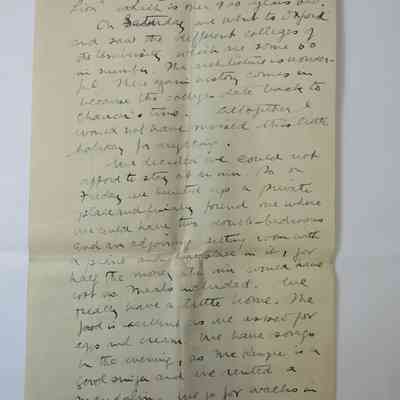 Lion" which is over 400 years old.
On Saturday we went to Oxford
and saw the different colleges of
the University which are some 20
in number. The architecture is wonder-
ful. Here again history comes in
because the colleges date back to
Chaucer's time. Altogether I
would not have missed this little
holiday for anything.
We decided we could not
afford to stay at an inn. So on
Friday we hunted up a private
place and finally found one where
we could have two double-bedrooms
and an adjoining sitting room with
a piano and fireplace in it, for
half the money the inn would have
cost us. Meals included. We
really have a little home. The
food is excellent as we asked for
eggs and cream. We have songs
in the evening, as is a
good singer and we rented a
mandolin. We go for walks in